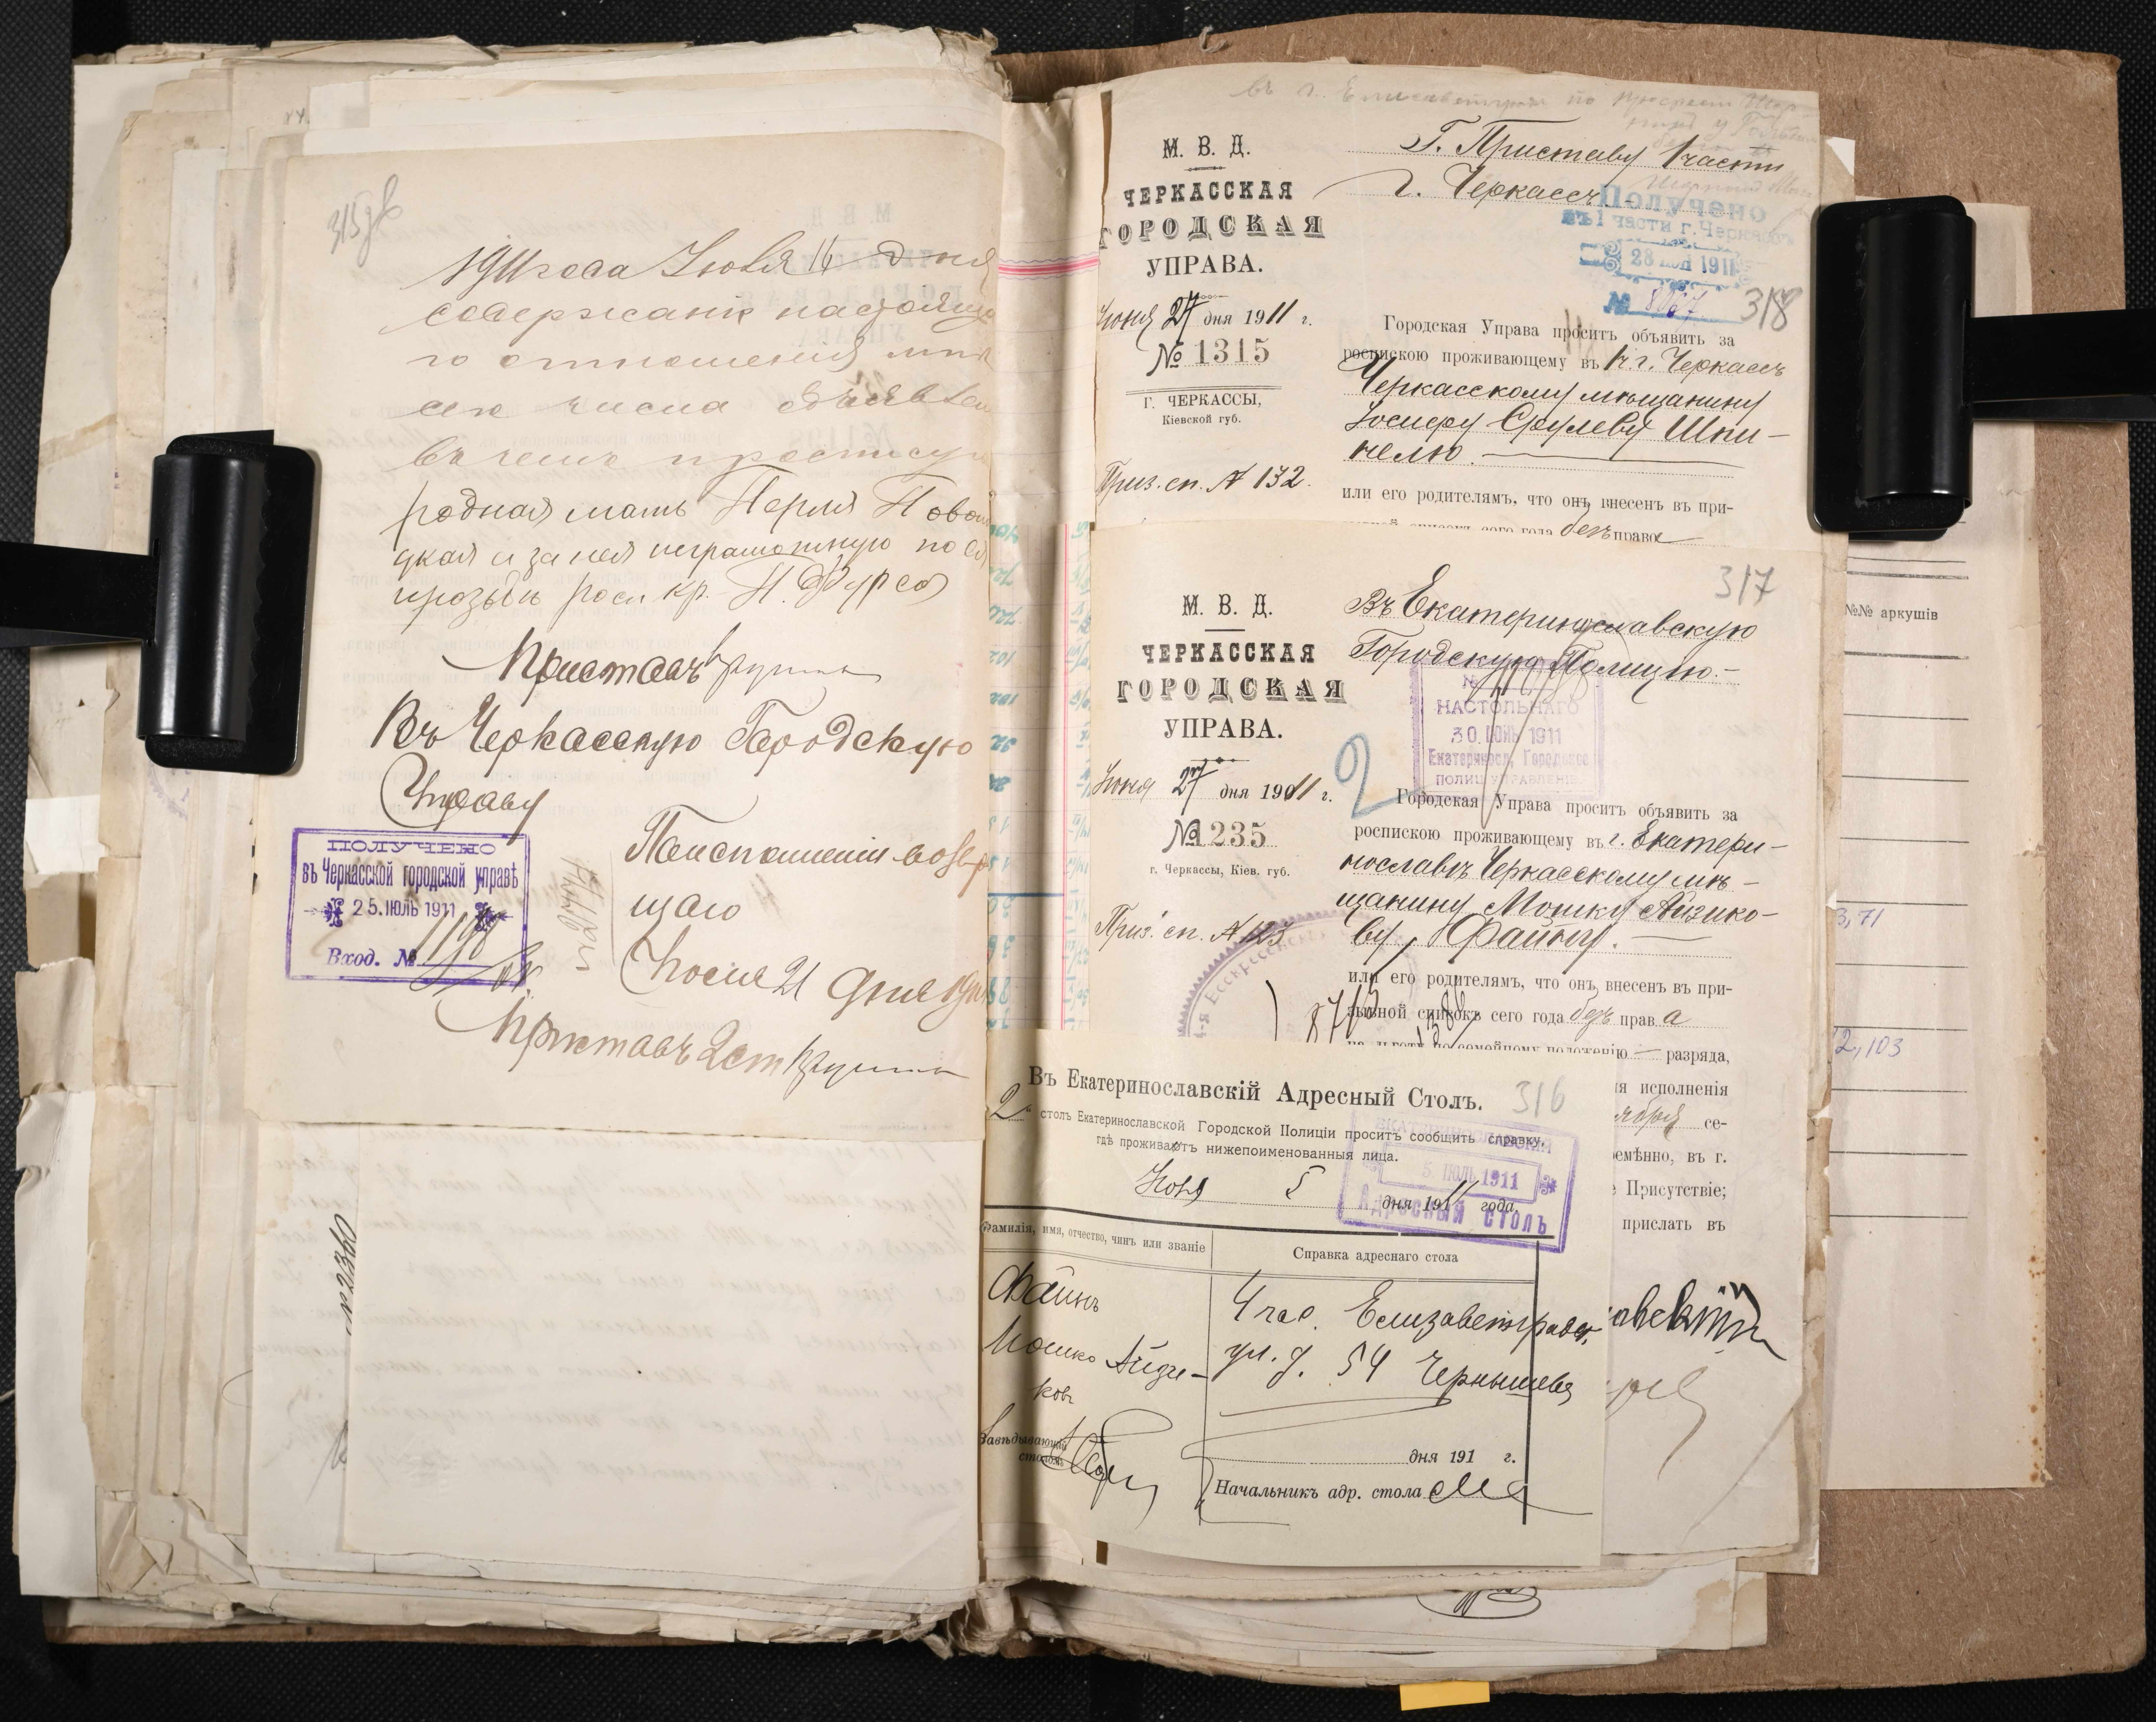 1911 года Июля 16 дня
содержаніе настояща
го отношенія мнѣ
сего числа объявлен
въ чемъ и росписую
родная мать Перля Новои
цкая и за нея неграмотную по ея
прозьбѣ росп. кр. Н. Фурса
Приставъ
Въ Черкасскую Городскую
Управу
ПОЛУЧЕНО
въ Черкасской городской управѣ
25. ІЮЛЬ 1911
Вход. № 1198
По исполненіи возвра
щаю
Июля 21 дня 1911
Приставъ 2 ст
№ 2360
въ г. Елисаветград по
М. В. Д.
ЧЕРКАССКАЯ
ГОРОДСКАЯ
УПРАВА.
Июня 27 дня 1911 г.
№ 1315
Г. ЧЕРКАССЫ,
Кіевской губ.
Приз. сп. № 132.
Г. Приставу 1 части
г. Черкассъ
Получено
въ 1 части г. Черкассъ
28 ІЮН 1911
№
318
Городская Управа проситъ объявить за
роспискою проживающему въ 1 ч. г. Черкассъ
Черкасскому мѣщанину
Іосифу Срулеву Шпи-
нелю.
или его родителямъ, что онъ внесенъ въ при-
зывной списокъ сего года безъ права
317
М. В. Д.
ЧЕРКАССКАЯ
ГОРОДСКАЯ
УПРАВА.
Июня 27 дня 1911 г.
№ 1235
г. Черкассы, Кіев. губ.
Приз. сп. № 123
Въ Екатеринославскую
Городскую Полицію.-
НАСТОЛЬНАГО
30. ІЮНЬ 1911
Екатеринос. Городское
ПОЛИЦ. УПРАВЛЕНІЕ
2
Городская Управа проситъ объявить за
роспискою проживающему въ г. Екатери-
нославѣ Черкасскому мѣ-
щанину Мошку Айзико-
ву Файну.
или его родителямъ, что онъ внесенъ въ при-
зывной списокъ сего года безъ права
на льготу по семейному положенію — разряда,
ія исполненія
ября се-
ремѣнно, въ г.
е Присутствіе;
прислать въ
316
Въ Екатеринославскій Адресный Столъ.
2 столъ Екатеринославской Городской Полиціи проситъ сообщить справку,
гдѣ проживаютъ нижепоименованныя лица.
Июля 5 дня 1911 года.
ЕКАТЕРИНОСЛАВСКІЙ
5 ІЮЛЬ 1911
АДРЕСНЫЙ СТОЛЪ
Фамилія, имя, отчество, чинъ или званіе
Справка адреснаго стола
Файнъ
Мошко Айзи-
ковъ
4 час. Елизаветградск.
ул. д. 54 Чернышева
Завѣдывающій
столомъ
дня 191 г.
Начальникъ адр. стола
№№ аркушів
3,71
2,103